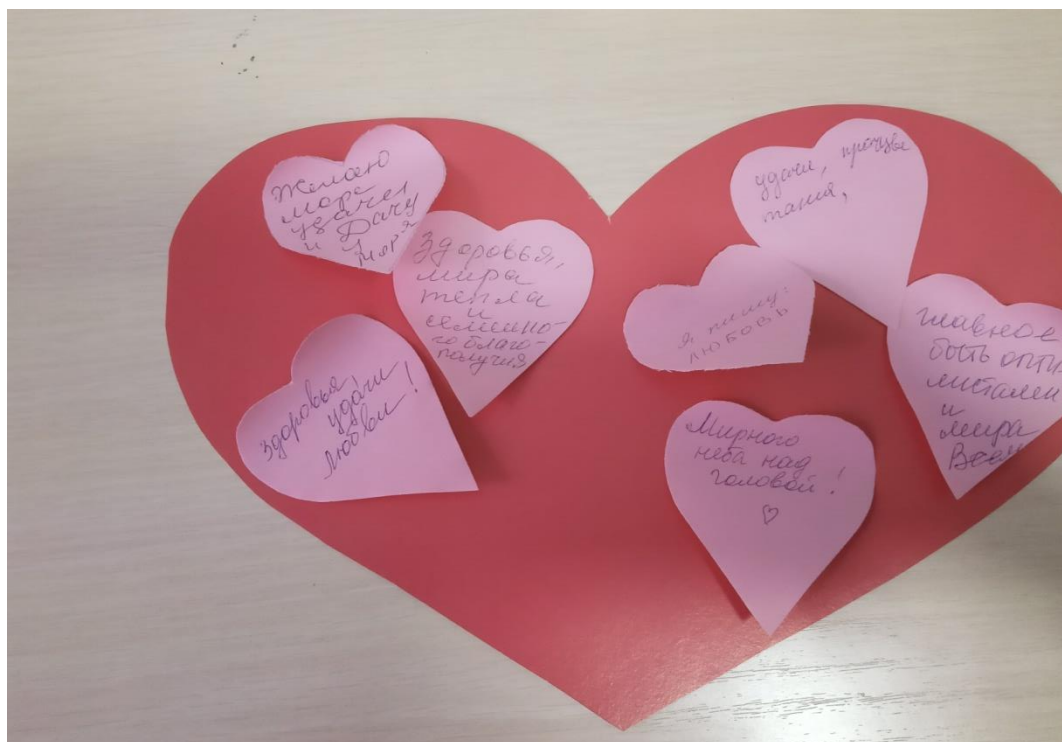 Желаю
море
удачи
и Дачу
у
моря
Здоровья,
мира
тепла
и
семейно-
го благо-
получия
Здоровья,
удачи
любви!
удачи, процве
тания,
я пишу:
любовь
главное
быть опти
мистами
и
мира
Всем
Мирного
неба над
головой!